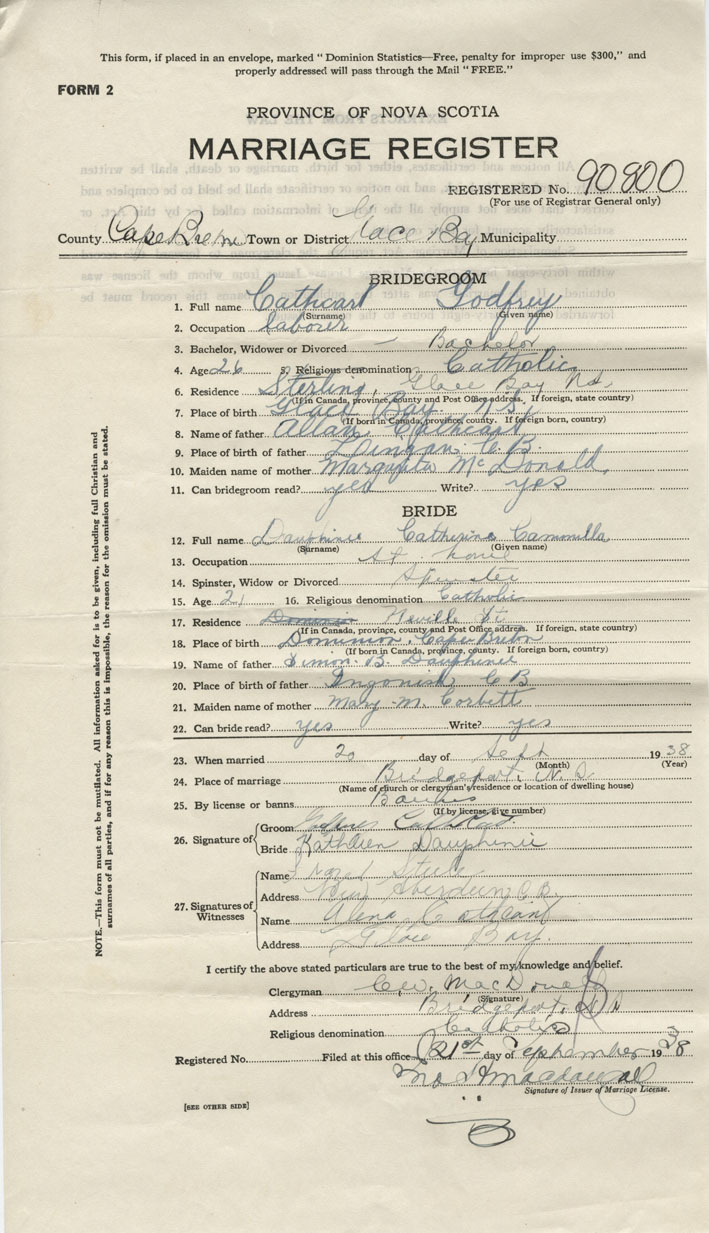 This form, if placed in an envelope, marked "Dominion Statistics—Free, penalty for improper use $300," and
properly addressed will pass through the Mail "FREE."
FORM 2
PROVINCE OF NOVA SCOTIA
MARRIAGE REGISTER
REGISTERED No. 90800
(For use of Registrar General only)
County Cape Breton Town or District Glace Bay Municipality
BRIDEGROOM
1. Full name Cathcart Godfrey
(Surname) (Given name)
2. Occupation laborer
3. Bachelor, Widower or Divorced — Bachelor
4. Age 26 5. Religious denomination Catholic
6. Residence Sterling, Glace Bay N.S.
(If in Canada, province, county and Post Office address. If foreign, state country)
7. Place of birth Glace Bay N.S.
(If born in Canada, province, county. If foreign born, country)
8. Name of father Allan Cathcart
9. Place of birth of father Lingan C.B.
10. Maiden name of mother Margaret McDonald
11. Can bridegroom read? yes Write? yes
BRIDE
12. Full name Dauphinee Catherine Cammilla
(Surname) (Given name)
13. Occupation at home
14. Spinster, Widow or Divorced Spinster
15. Age 21 16. Religious denomination Catholic
17. Residence Dominion Neville St
(If in Canada, province, county and Post Office address. If foreign, state country)
18. Place of birth Dominion, Cape Breton
(If born in Canada, province, county. If foreign born, country)
19. Name of father Simon B. Dauphinee
20. Place of birth of father Ingonish C B
21. Maiden name of mother Mary M. Corbett
22. Can bride read? yes Write? yes
23. When married 20 day of Sept 1938
(Month) (Year)
24. Place of marriage Bridgeport, N.S.
(Name of church or clergyman's residence or location of dwelling house)
25. By license or banns Banns
(If by license, give number)
26. Signature of
Groom Godfrey Cathcart
Bride Kathleen Dauphinee
27. Signatures of Witnesses
Name
Address New Aberdeen C.B.
Name Cathcart
Address Glace Bay.
I certify the above stated particulars are true to the best of my knowledge and belief.
Clergyman MacDonald
(Signature)
Address Bridgeport, N.S.
Religious denomination Catholic
Registered No. Filed at this office 21st day of September 1938
Signature of Issuer of Marriage License.
[SEE OTHER SIDE]
NOTE.—This form must not be mutilated. All information asked for is to be given, including full Christian and
surnames of all parties, and if for any reason this is impossible, the reason for the omission must be stated.